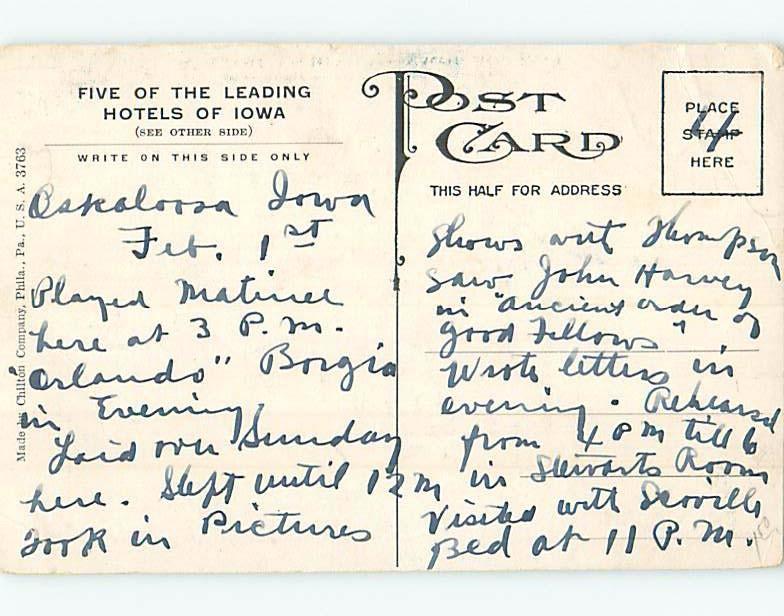 FIVE OF THE LEADING
HOTELS OF IOWA
(SEE OTHER SIDE)
WRITE ON THIS SIDE ONLY
POST
CARD
THIS HALF FOR ADDRESS
PLACE
STAMP
HERE
4
Made by Chilton Company, Phila., Pa., U. S. A. 3763
Oskaloosa Iowa
Feb. 1st
Played Matinee
here at 3 P.M.
"Orlando" Borgia
in Evening,
Laid over Sunday
here. Slept until 12 M
Took in Pictures
Shows with Thompson
Saw John Harvey
in "ancient order of
good Fellows"
Wrote letters in
evening. Rehearsed
from 4 PM till 6
in Stewarts Room
Visited with Scovills
Bed at 11 P.M.